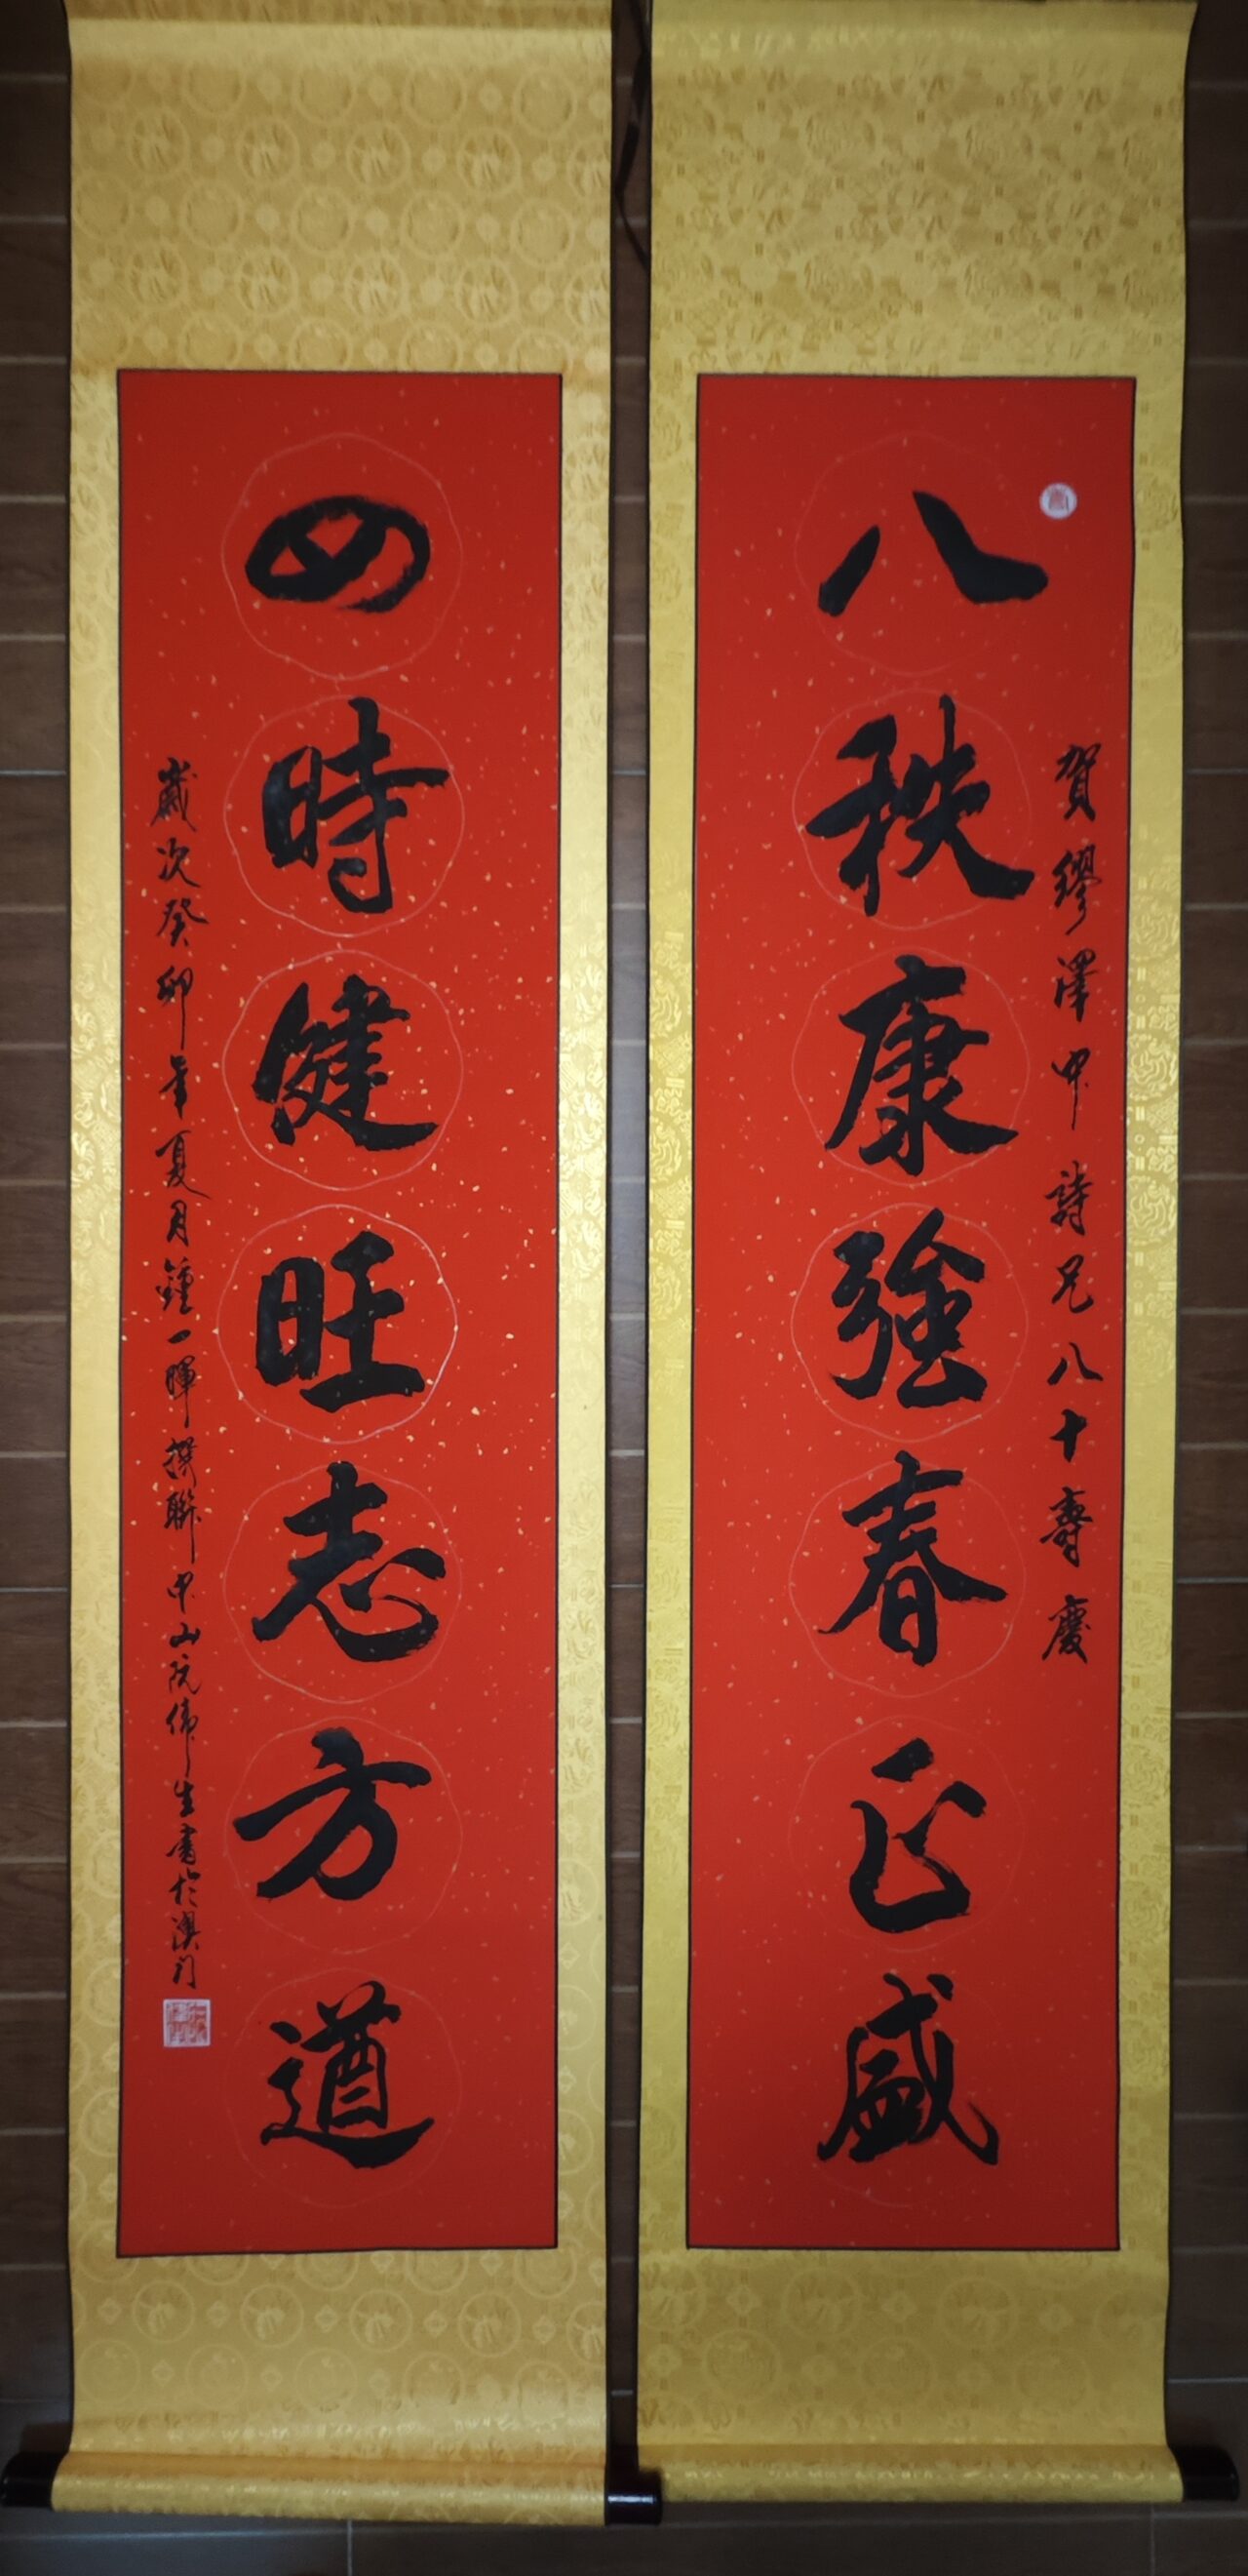 賀繆澤中詩兄八十壽慶
八秩康強春正盛
四時健旺志方遒
歲次癸卯年夏月鍾一暉撰聯中山阮偉生書於澳门